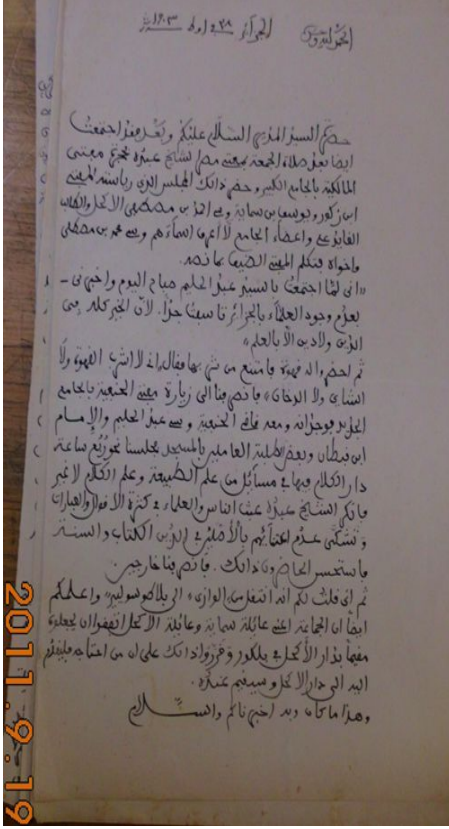 الحمد لله وحده الجزائر ٢٨ اوت سنة ١٩٠٣
حضرة السيد المدير السلام عليكم وبعد فقد اجتمعنا
ايضا بعد صلاة الجمعة بمفتي مصر الشايخ عبده بمجمع مفتي
المالكية بالجامع الكبير وحضر ذالك المجلس الذي رياسته للمفتي
ابن زكور ويوسف بن سماية وسي احمد بن مصطفى الاكحل والكاتب
واعضاء الجامع لا اعرف اسماءهم وسي محمد بن مصطفى
واخواه فتكلم المفتي الضيف بما نصه
«انى لمّا اجتمعت بالسيد عبد الحليم صباح اليوم واخبرنى -
بعدم وجود العلماء بالجزائر تأسفت جدّا. لانّ الخير كله في
الدين ولا دين الا بالعلم»
ثم احضر له قهوة فامتنع من شربها فقال انى لا اشرب القهوة ولا
الشاى ولا الدخان» فانصرفنا الى زيارة مفتي الحنفية بالجامع
الجديد فوجدناه ومعه قاضي الحنفية وسي عبد الحليم والإمام
ابن قبطان وبعض الطلبة العاملين بالمسجد فجلسنا نحو ربع ساعة
دار الكلام فيها في مسائل من علم الطبيعة وعلم الكلام لا غير
فانكر الشايخ عبده على الناس والعلماء في كثرة الاقوال والعبارات
وتشكّى عدم اعتنائهم بالأصلين في الدين الكتاب والسنة
فاستحسن الحاضرون ذالك. فانصرفنا خارجين
ثم انى قلت لكم انه انتقل من «الوازى» الى بلاصوسوليير» واعلمكم
ايضا ان الجماعة اعني عائلة سماية وعائلة الاكحل اتفقوا ان يجعلوه
مقيما بدار الاكحل في بلكور وقرروا ذالك على ان من احتاجه فليقدم
اليه الى دار الاكحل وسيقيم عنده.
وهذا ما كان وبه اخبرناكم والسلام
2011.9.19